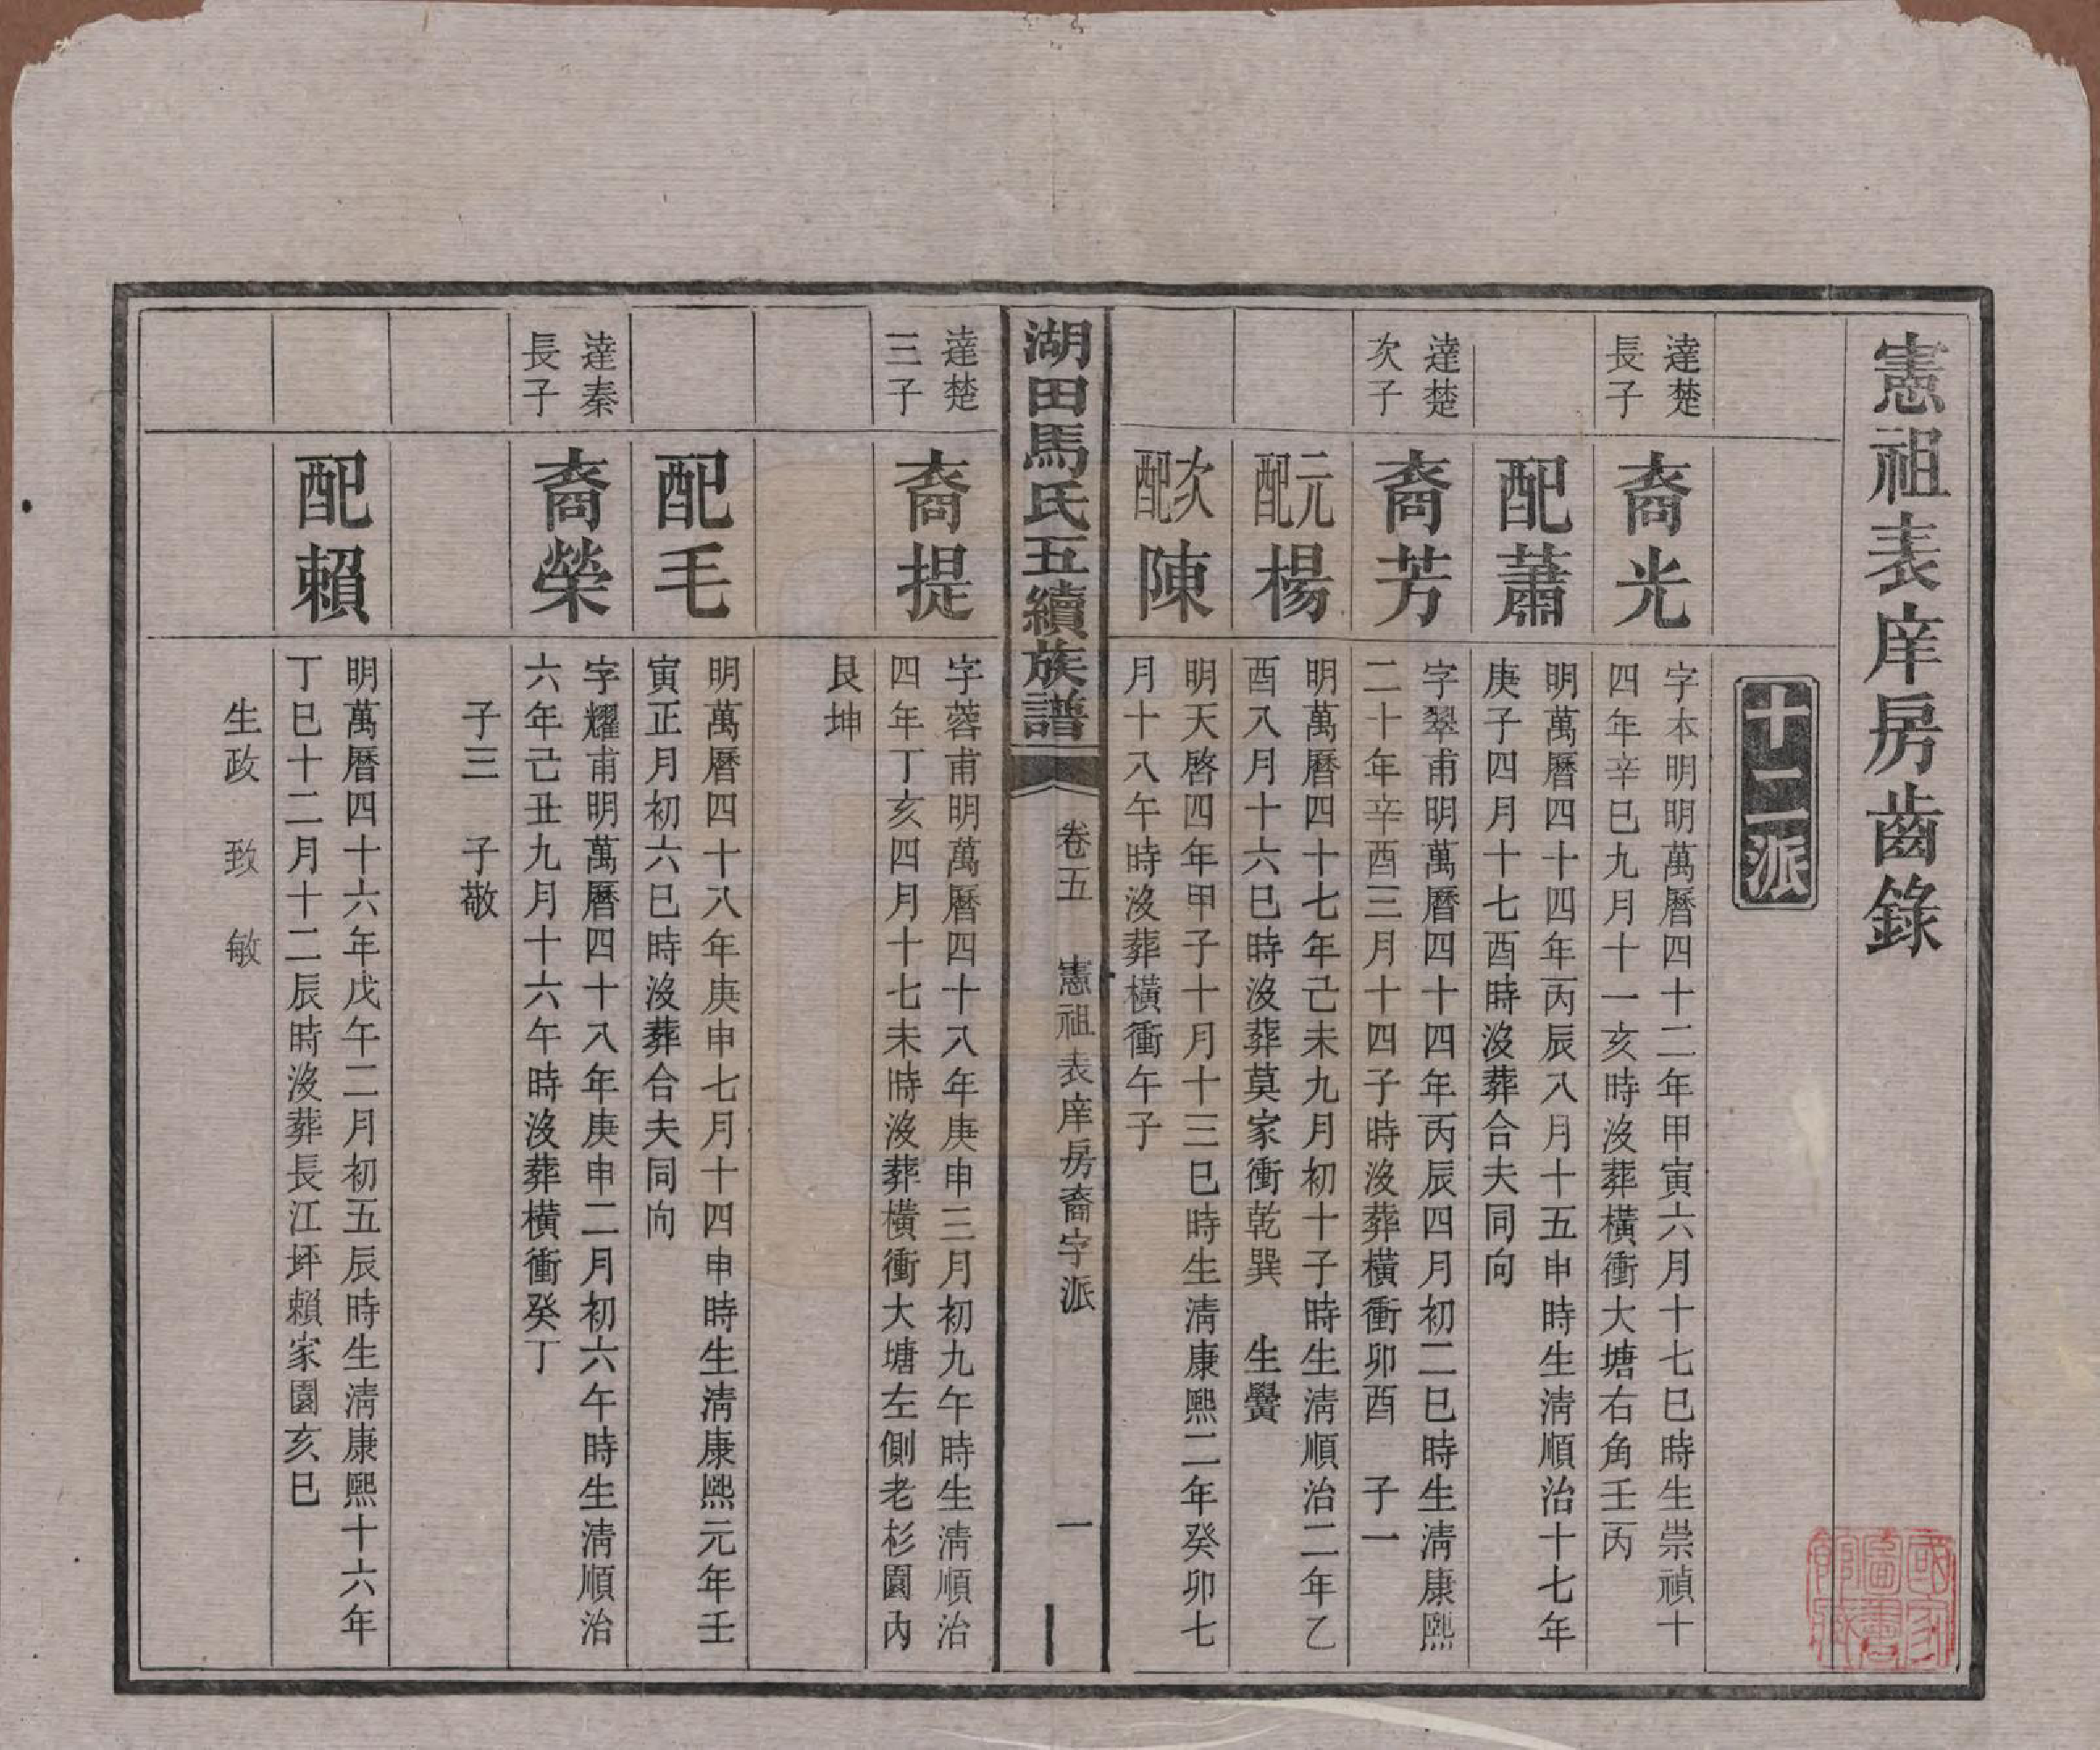 憲祖表庠房齒錄
十二派
達楚
長子
裔光
字本明明萬曆四十二年甲寅六月十七巳時生崇禎十
四年辛巳九月十一亥時沒葬橫衝大塘右角壬丙
配蕭
明萬曆四十四年丙辰八月十五申時生清順治十七年
庚子四月十七酉時沒葬合夫同向
達楚
次子
裔芳
字翠甫明萬曆四十四年丙辰四月初二巳時生清康熙
二十年辛酉三月十四子時沒葬橫衝卯酉　子一
元配
楊
明萬曆四十七年己未九月初十子時生清順治二年乙
酉八月十六巳時沒葬莫家衝乾巽　生黌
次配
陳
明天啓四年甲子十月十三巳時生清康熙二年癸卯七
月十八午時沒葬橫衝午子
湖田馬氏五續族譜
卷五　憲祖表庠房裔字派　一
達楚
三子
裔提
字蓉甫明萬曆四十八年庚申三月初九午時生清順治
四年丁亥四月十七未時沒葬橫衝大塘左側老杉園內
艮坤
配毛
明萬曆四十八年庚申七月十四申時生清康熙元年壬
寅正月初六巳時沒葬合夫同向
達秦
長子
裔榮
字耀甫明萬曆四十八年庚申二月初六午時生清順治
六年己丑九月十六午時沒葬橫衝癸丁
子三　子敬
配賴
明萬曆四十六年戊午二月初五辰時生清康熙十六年
丁巳十二月十二辰時沒葬長江坪賴家園亥巳
生政　致　敏
國家
圖書
館藏